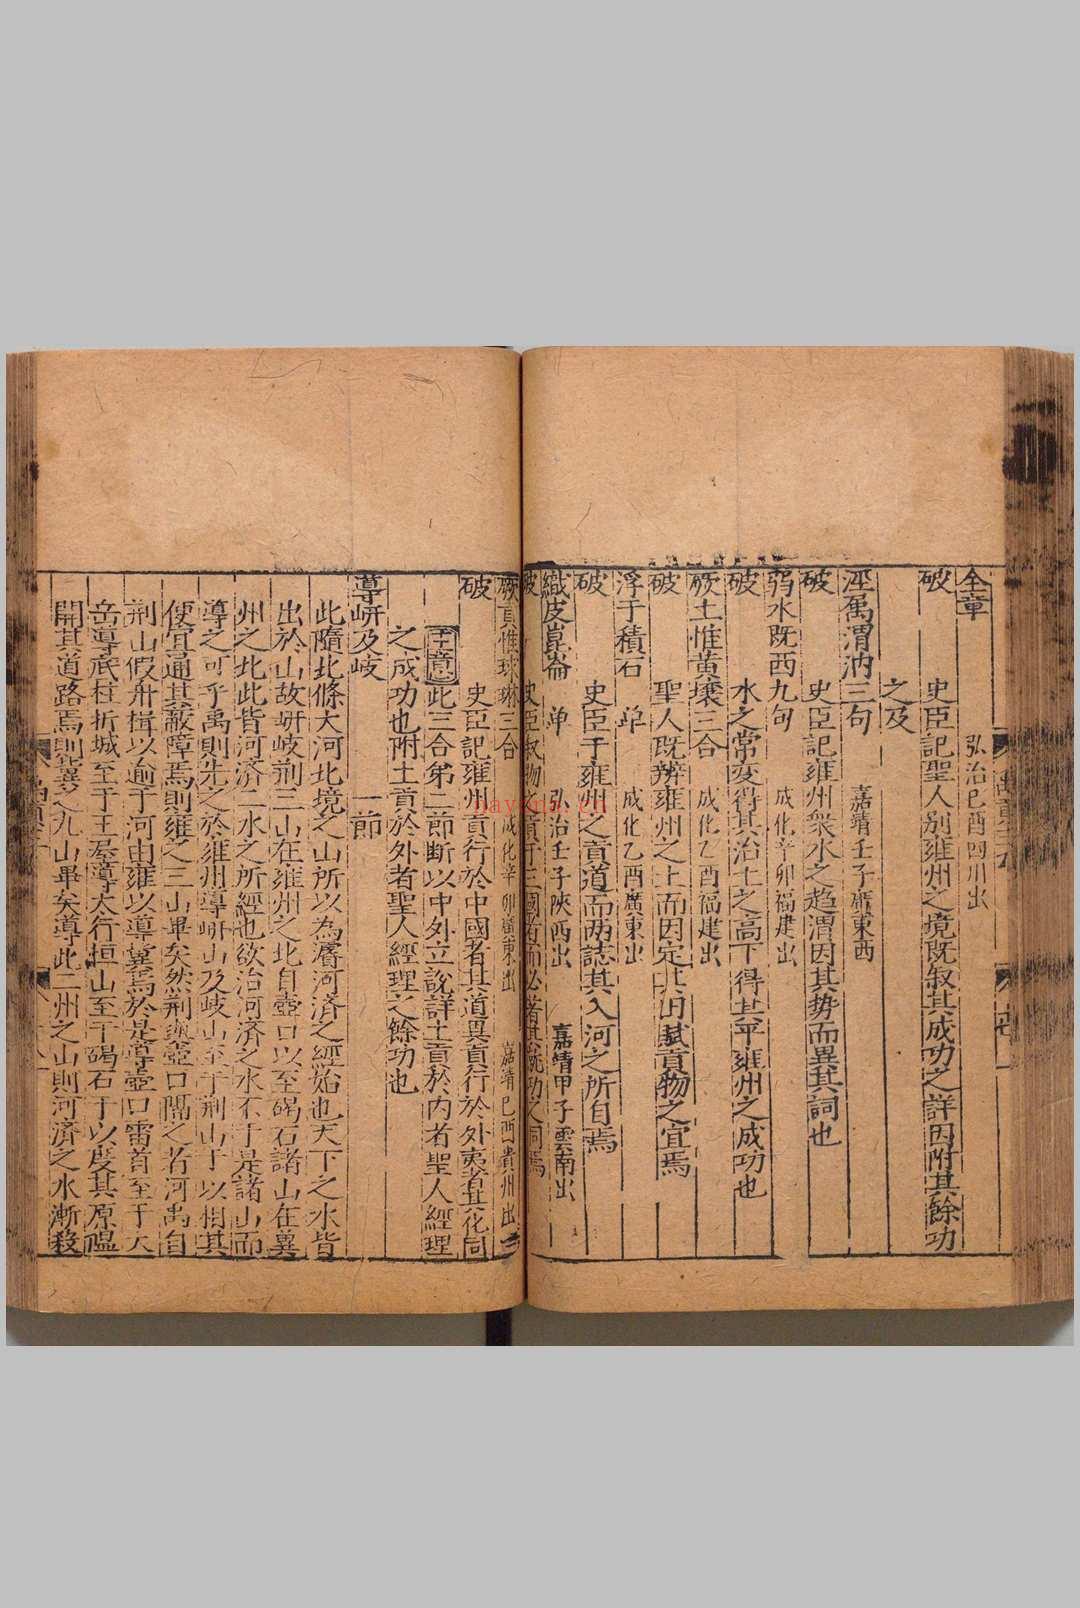 全章 弘治己酉四川出
破 史臣記聖人别雍州之境既敘其成功之詳因附其餘功
之及
涇属渭汭三句 嘉靖壬子廣東西
破 史臣記雍州衆水之趋渭因其势而異其詞也
弱水既西九句 成化辛卯福建出
破 水之常变得其治土之高下得其平雍州之成功也
厥土惟黄壤三合 成化乙酉福建出
破 聖人既辨雍州之土而因定其田賦貢物之宜焉
浮于積石 单 成化乙酉廣東出
破 史臣于雍州之貢道而两誌其入河之所自焉
織皮崑崙 单 弘治壬子陝西出 嘉靖甲子雲南出
破 史臣叙物之貢于三國者而必著其就功之詞焉
厥貢惟球琳三合 成化辛卯廣東出 嘉靖己酉貴州出
破 史臣記雍州貢行於中國者其道異貢行於外夷者其化同
主意 此三合第二節断以中外立説詳土貢於内者聖人經理
之成功也附土貢於外者聖人經理之餘功也
導岍及岐 一節
此隨北條大河北境之山所以為濬河济之經始也天下之水皆
出於山故岍岐荆三山在雍州之北自壺口以至碣石諸山在冀
州之北此皆河济二水之所經也欲治河济之水不于是諸山而
導之可乎禹則先之於雍州導岍山及岐山至于荆山于以相其
便宜通其蔽障焉則雍之三山畢矣然荆與壺口隔之者河禹自
荆山假舟楫以逾于河由雍以導冀焉於是導壺口雷首至于太
岳導底柱析城至于王屋導太行恒山至于碣石于以度其原隰
開其道路焉則冀之九山畢矣導此二州之山則河济之水漸殺
bayona.cn